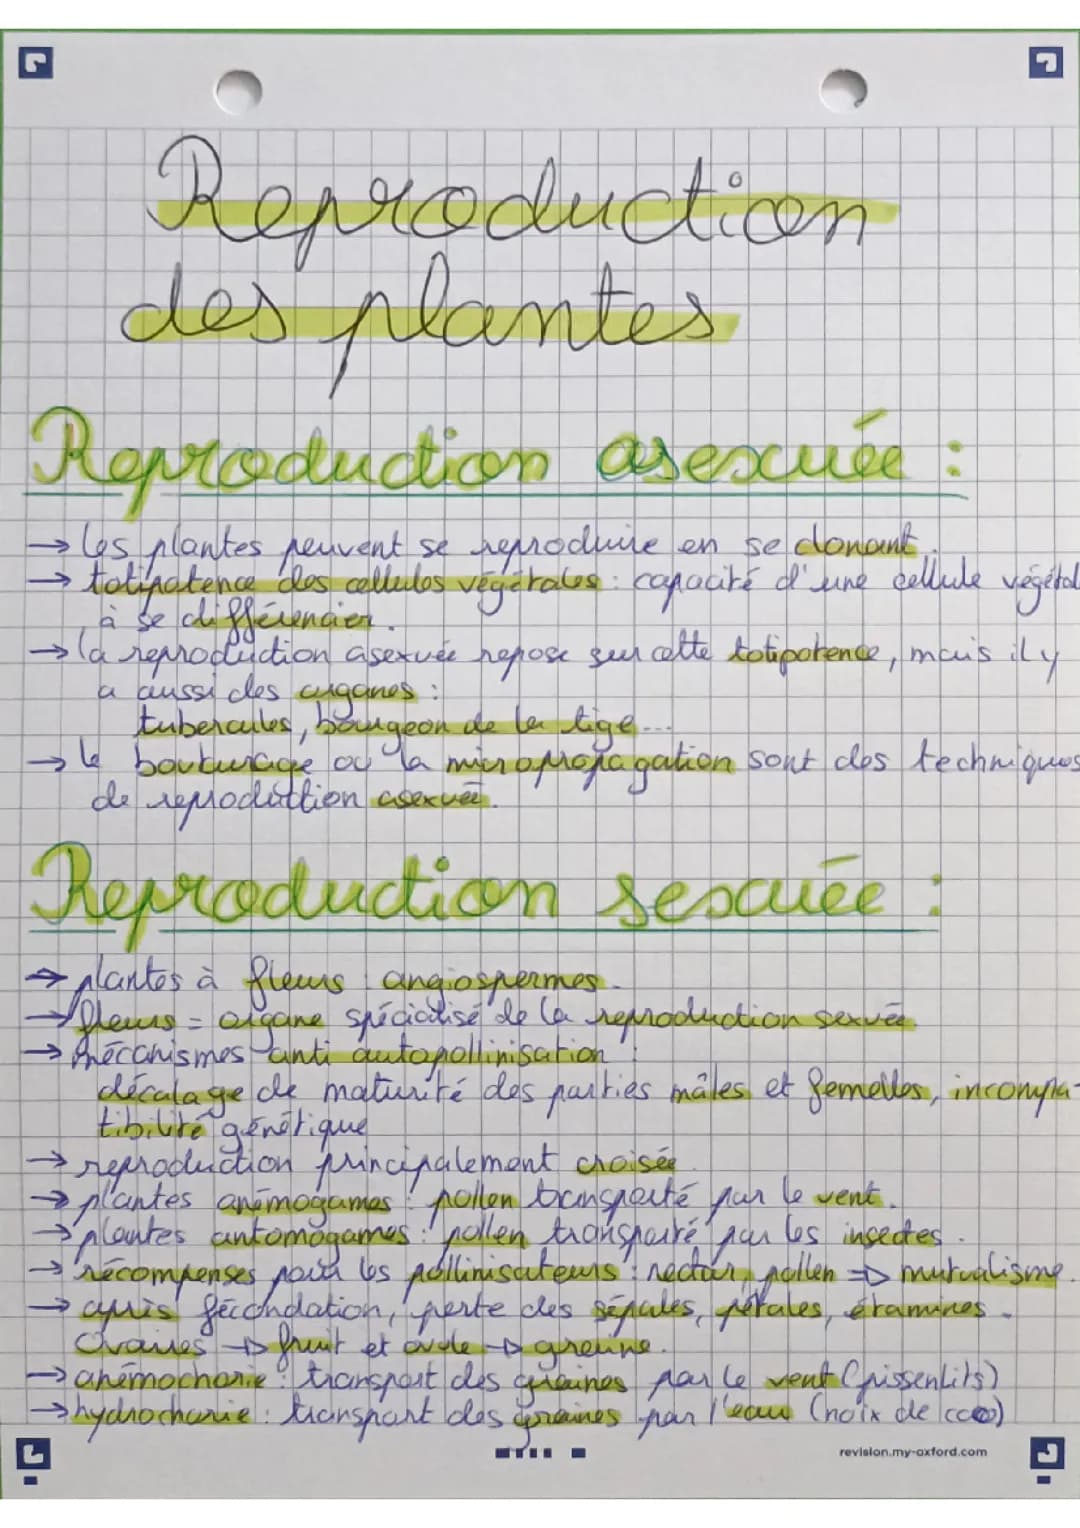 Reproduction
des plantes
Reproduction asexuée :
→ les plantes peuvent se reproduire en se clonant.
→ totipotence des cellules végétales : capacité d'une cellule végétal
à se différencier.
→ la reproduction asexuée repose sur cette totipotence, mais il y
a aussi des organes :
tubercules, bourgeon de la tige...
→ le bouturage ou la micropropagation sont des techniques
de reproduction asexuée.
Reproduction sexuée :
→ plantes à fleurs : angiospermes.
→ fleurs = organe spécialisé de la reproduction sexuée
→ mécanismes anti autopollinisation :
décalage de maturité des parties mâles et femelles, incompa-
tibilité génétique
→ reproduction principalement croisée.
→ plantes anémogames : pollen transporté par le vent.
→ plantes antomogames : pollen transporté par les insectes.
→ récompenses pour les pollinisateurs : nectar, pollen ⇒ mutualisme.
→ après fécondation, perte des sépales, pétales, étamines.
Ovaires → fruit et ovule → graine.
→ anémochorie : transport des graines par le vent (pissenlits)
→ hydrochorie : transport des graines par l'eau (noix de coco)
revision.my-oxford.com